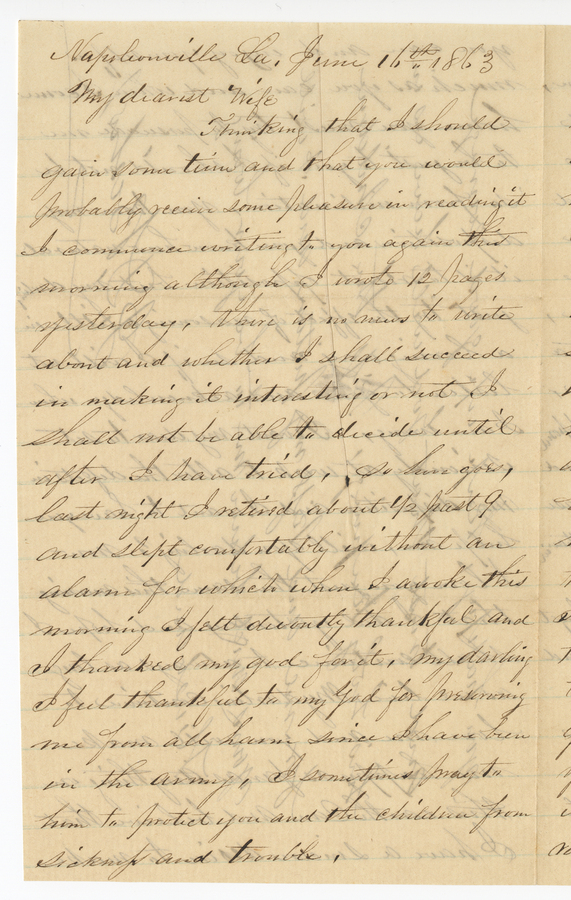 Napoleonville La, June 16th 1863
My dearest Wife
Thinking that I should
gain some time and that you would
probably receive some pleasure in reading it
I commence writing to you again this
morning although I wrote 12 pages
yesterday, there is no news to write
about and whether I shall succeed
in making it interesting or not I
shall not be able to decide until
after I have tried, so here goes,
last night I retired about 1/2 past 9
and slept comfortably without an
alarm for which when I awoke this
morning I felt devoutly thankful and
I thanked my god for it, my darling
I feel thankful to my God for preserving
me from all harm since I have been
in the army, I sometimes pray to
him to protect you and the children from
sickness and trouble,